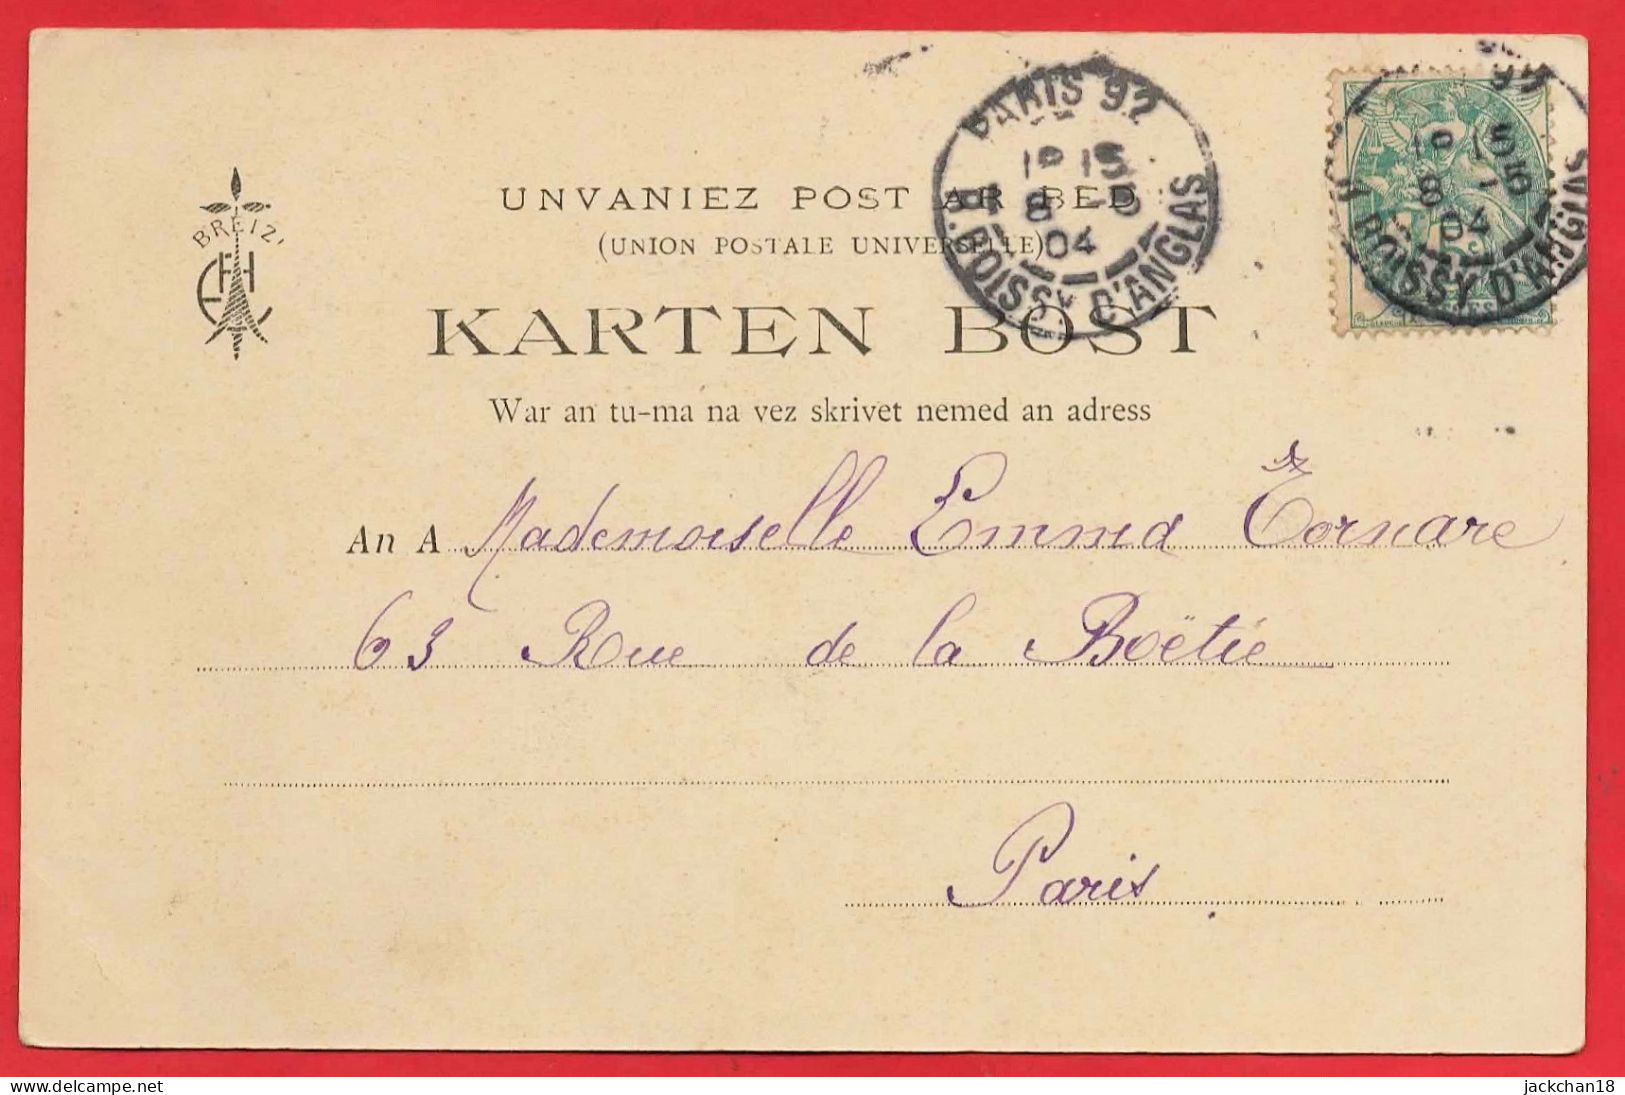 PARIS 92
1ᴱ 15
8 -5
04
R. BOISSY D'ANGLAS
15
8 -5
04
R. BOISSY D'ANGLAS
BREIZ'
UNVANIEZ POST AR BED
(UNION POSTALE UNIVERSELLE)
KARTEN BOST
War an tu-ma na vez skrivet nemed an adress
An A Mademoiselle Emma Tornare
63 Rue de la Boëtie
Paris
jackchan18